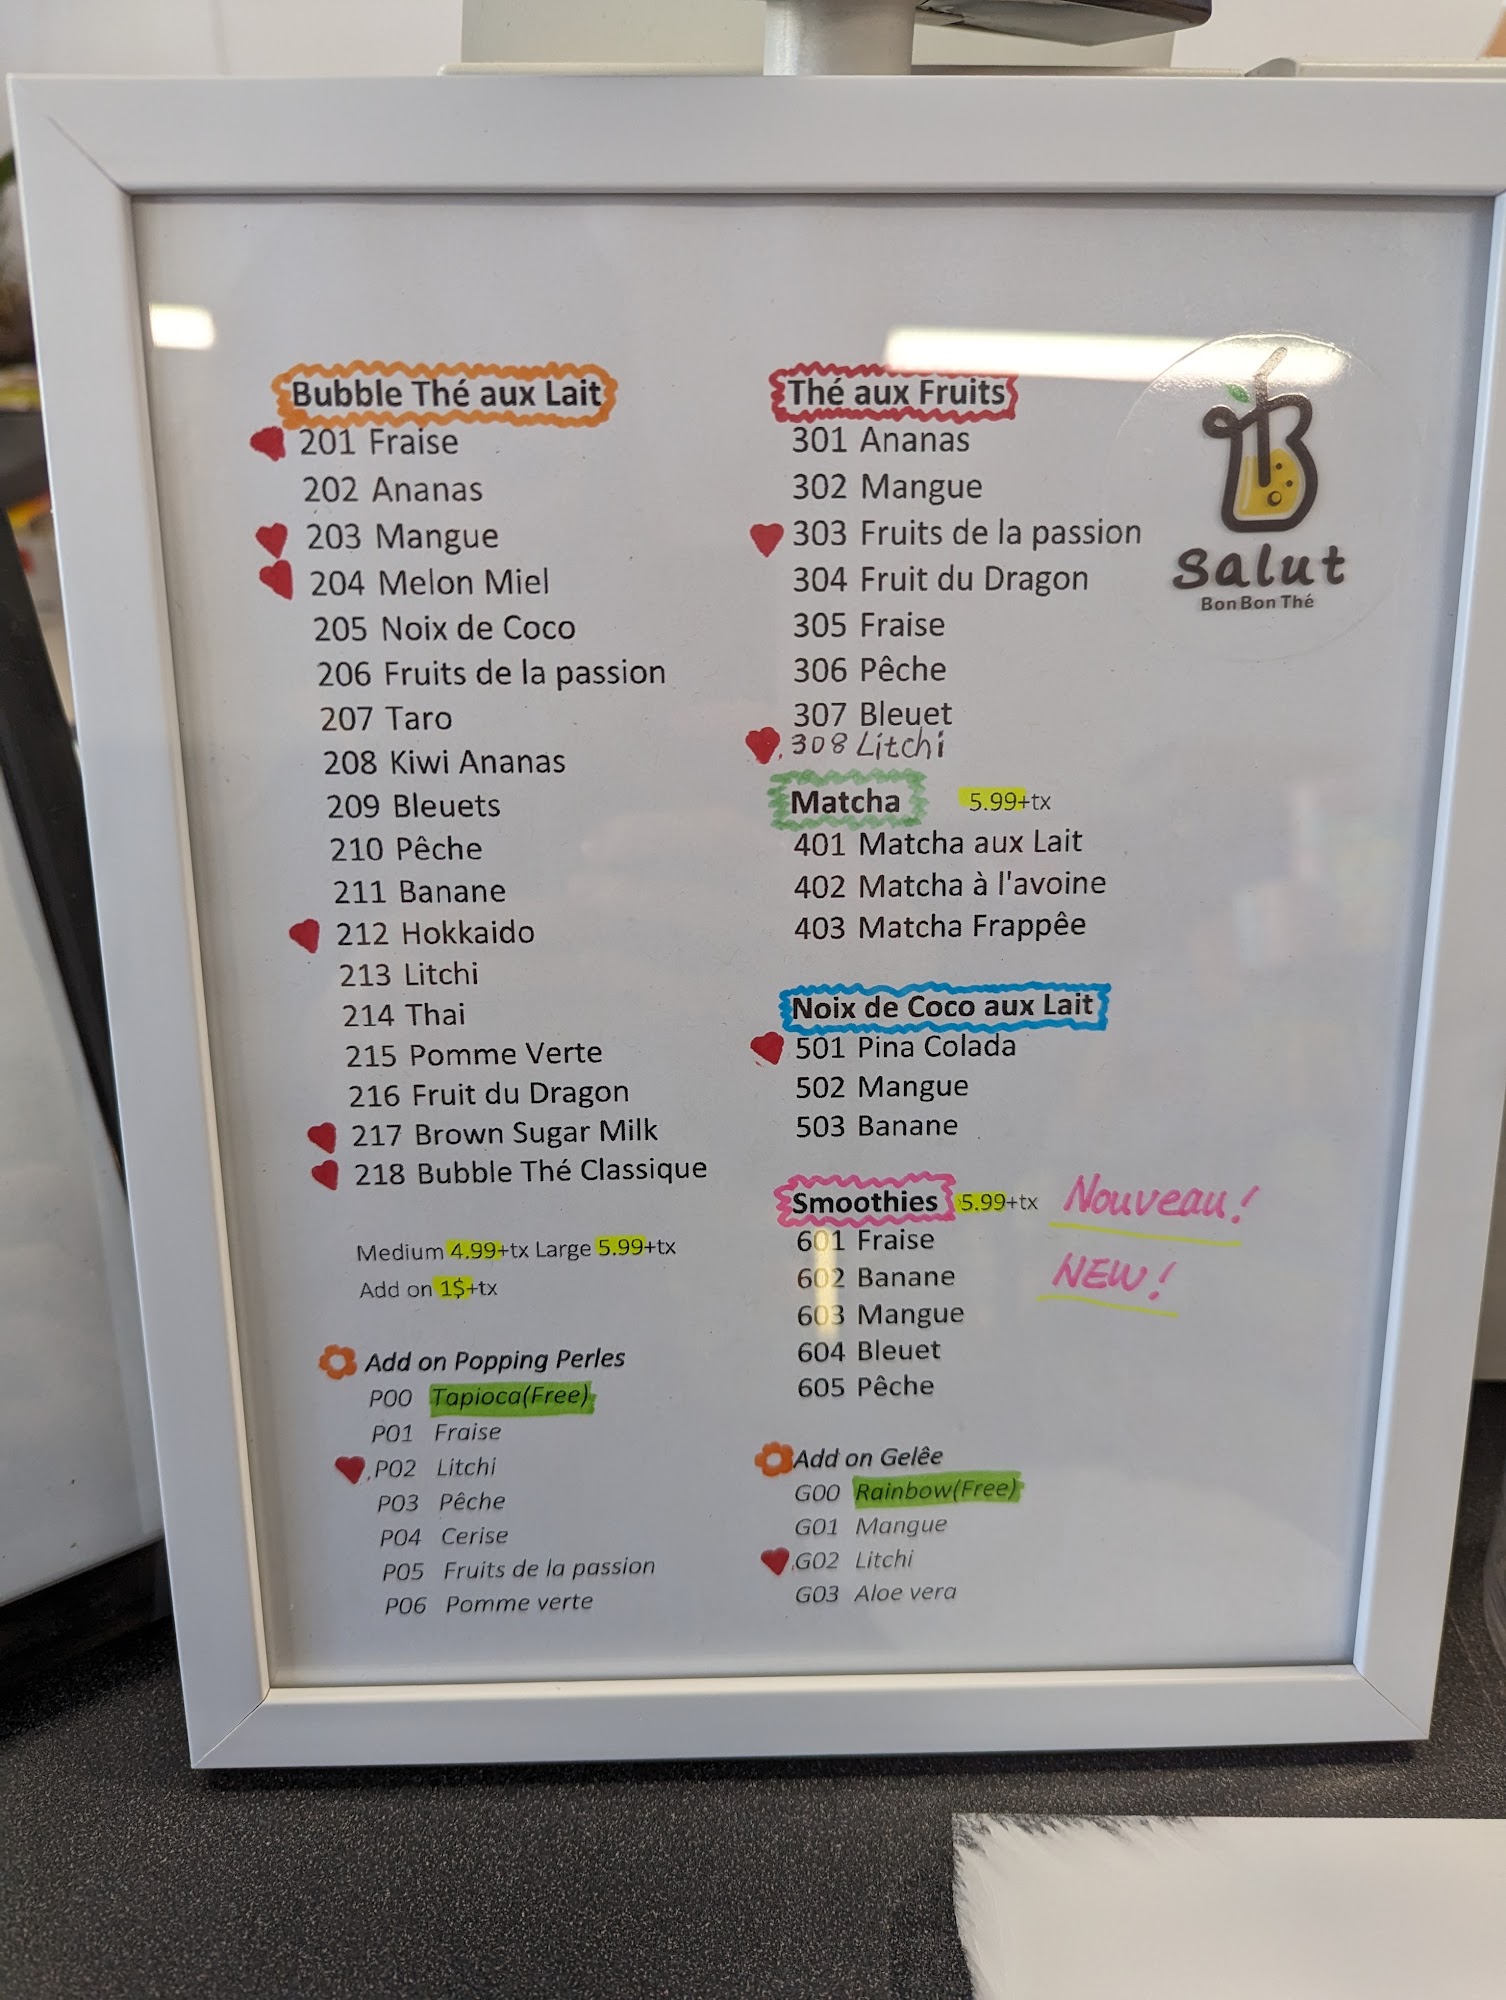 Bubble Thé aux Lait
201 Fraise
202 Ananas
203 Mangue
204 Melon Miel
205 Noix de Coco
206 Fruits de la passion
207 Taro
208 Kiwi Ananas
209 Bleuets
210 Pêche
211 Banane
212 Hokkaido
213 Litchi
214 Thai
215 Pomme Verte
216 Fruit du Dragon
217 Brown Sugar Milk
218 Bubble Thé Classique
Medium 4.99+tx Large 5.99+tx
Add on 1$+tx
Add on Popping Perles
P00 Tapioca(Free)
P01 Fraise
P02 Litchi
P03 Pêche
P04 Cerise
P05 Fruits de la passion
P06 Pomme verte
Thé aux Fruits
301 Ananas
302 Mangue
303 Fruits de la passion
304 Fruit du Dragon
305 Fraise
306 Pêche
307 Bleuet
308 Litchi
Matcha 5.99+tx
401 Matcha aux Lait
402 Matcha à l'avoine
403 Matcha Frappêe
Noix de Coco aux Lait
501 Pina Colada
502 Mangue
503 Banane
Smoothies 5.99+tx Nouveau!
NEW!
601 Fraise
602 Banane
603 Mangue
604 Bleuet
605 Pêche
Add on Gelêe
G00 Rainbow(Free)
G01 Mangue
G02 Litchi
G03 Aloe vera
Salut
BonBon Thé